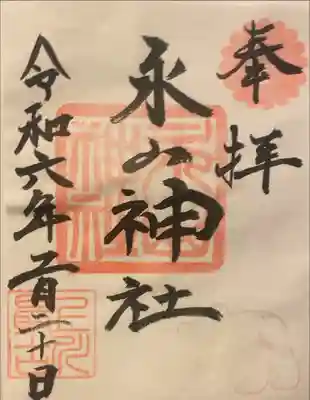 奉拝
永山神社
令和六年二月二十日